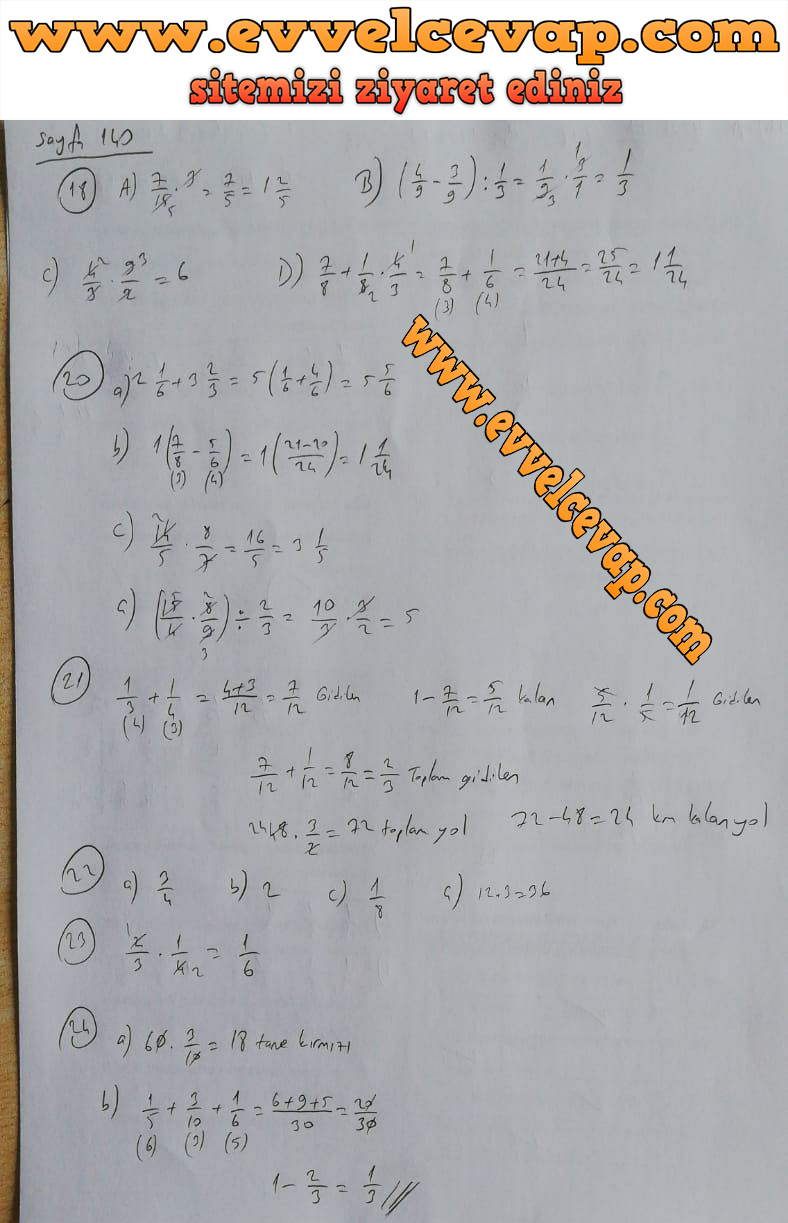 www.evvelcevap.com
sitemizi ziyaret ediniz
Sayfa 140
18 A) 7/15 . 3 = 7/5 = 1 2/5 B) (4/9 - 3/9) : 1/3 = 1/9 . 3/1 = 1/3
C) 4/3 . 9/2 = 6 D) 7/8 + 1/8 . 4/3 = 7/8 + 1/6 = 21+4/24 = 25/24 = 1 1/24
(3) (4)
20 a) 2 1/6 + 3 2/3 = 5 (1/6 + 4/6) = 5 5/6
b) 1 (7/8 - 5/6) = 1 (21-20/24) = 1 1/24
(3) (4)
c) 14/5 . 8/7 = 16/5 = 3 1/5
ç) (15/4 . 8/9) ÷ 2/3 = 10/3 . 3/2 = 5
21 1/3 + 1/4 = 4+3/12 = 7/12 Gidilen 1 - 7/12 = 5/12 kalan 5/12 . 1/5 = 1/12 Gidilen
(4) (3)
7/12 + 1/12 = 8/12 = 2/3 Toplam gidilen
48 . 3/2 = 72 toplam yol 72 - 48 = 24 km kalan yol
22 a) 3/4 b) 2 c) 1/8 ç) 12.3=36
23 2/3 . 1/4 = 1/6
24 a) 60 . 3/10 = 18 tane kırmızı
b) 1/5 + 3/10 + 1/6 = 6+9+5/30 = 20/30
(6) (3) (5)
1 - 2/3 = 1/3 //
www.evvelcevap.com